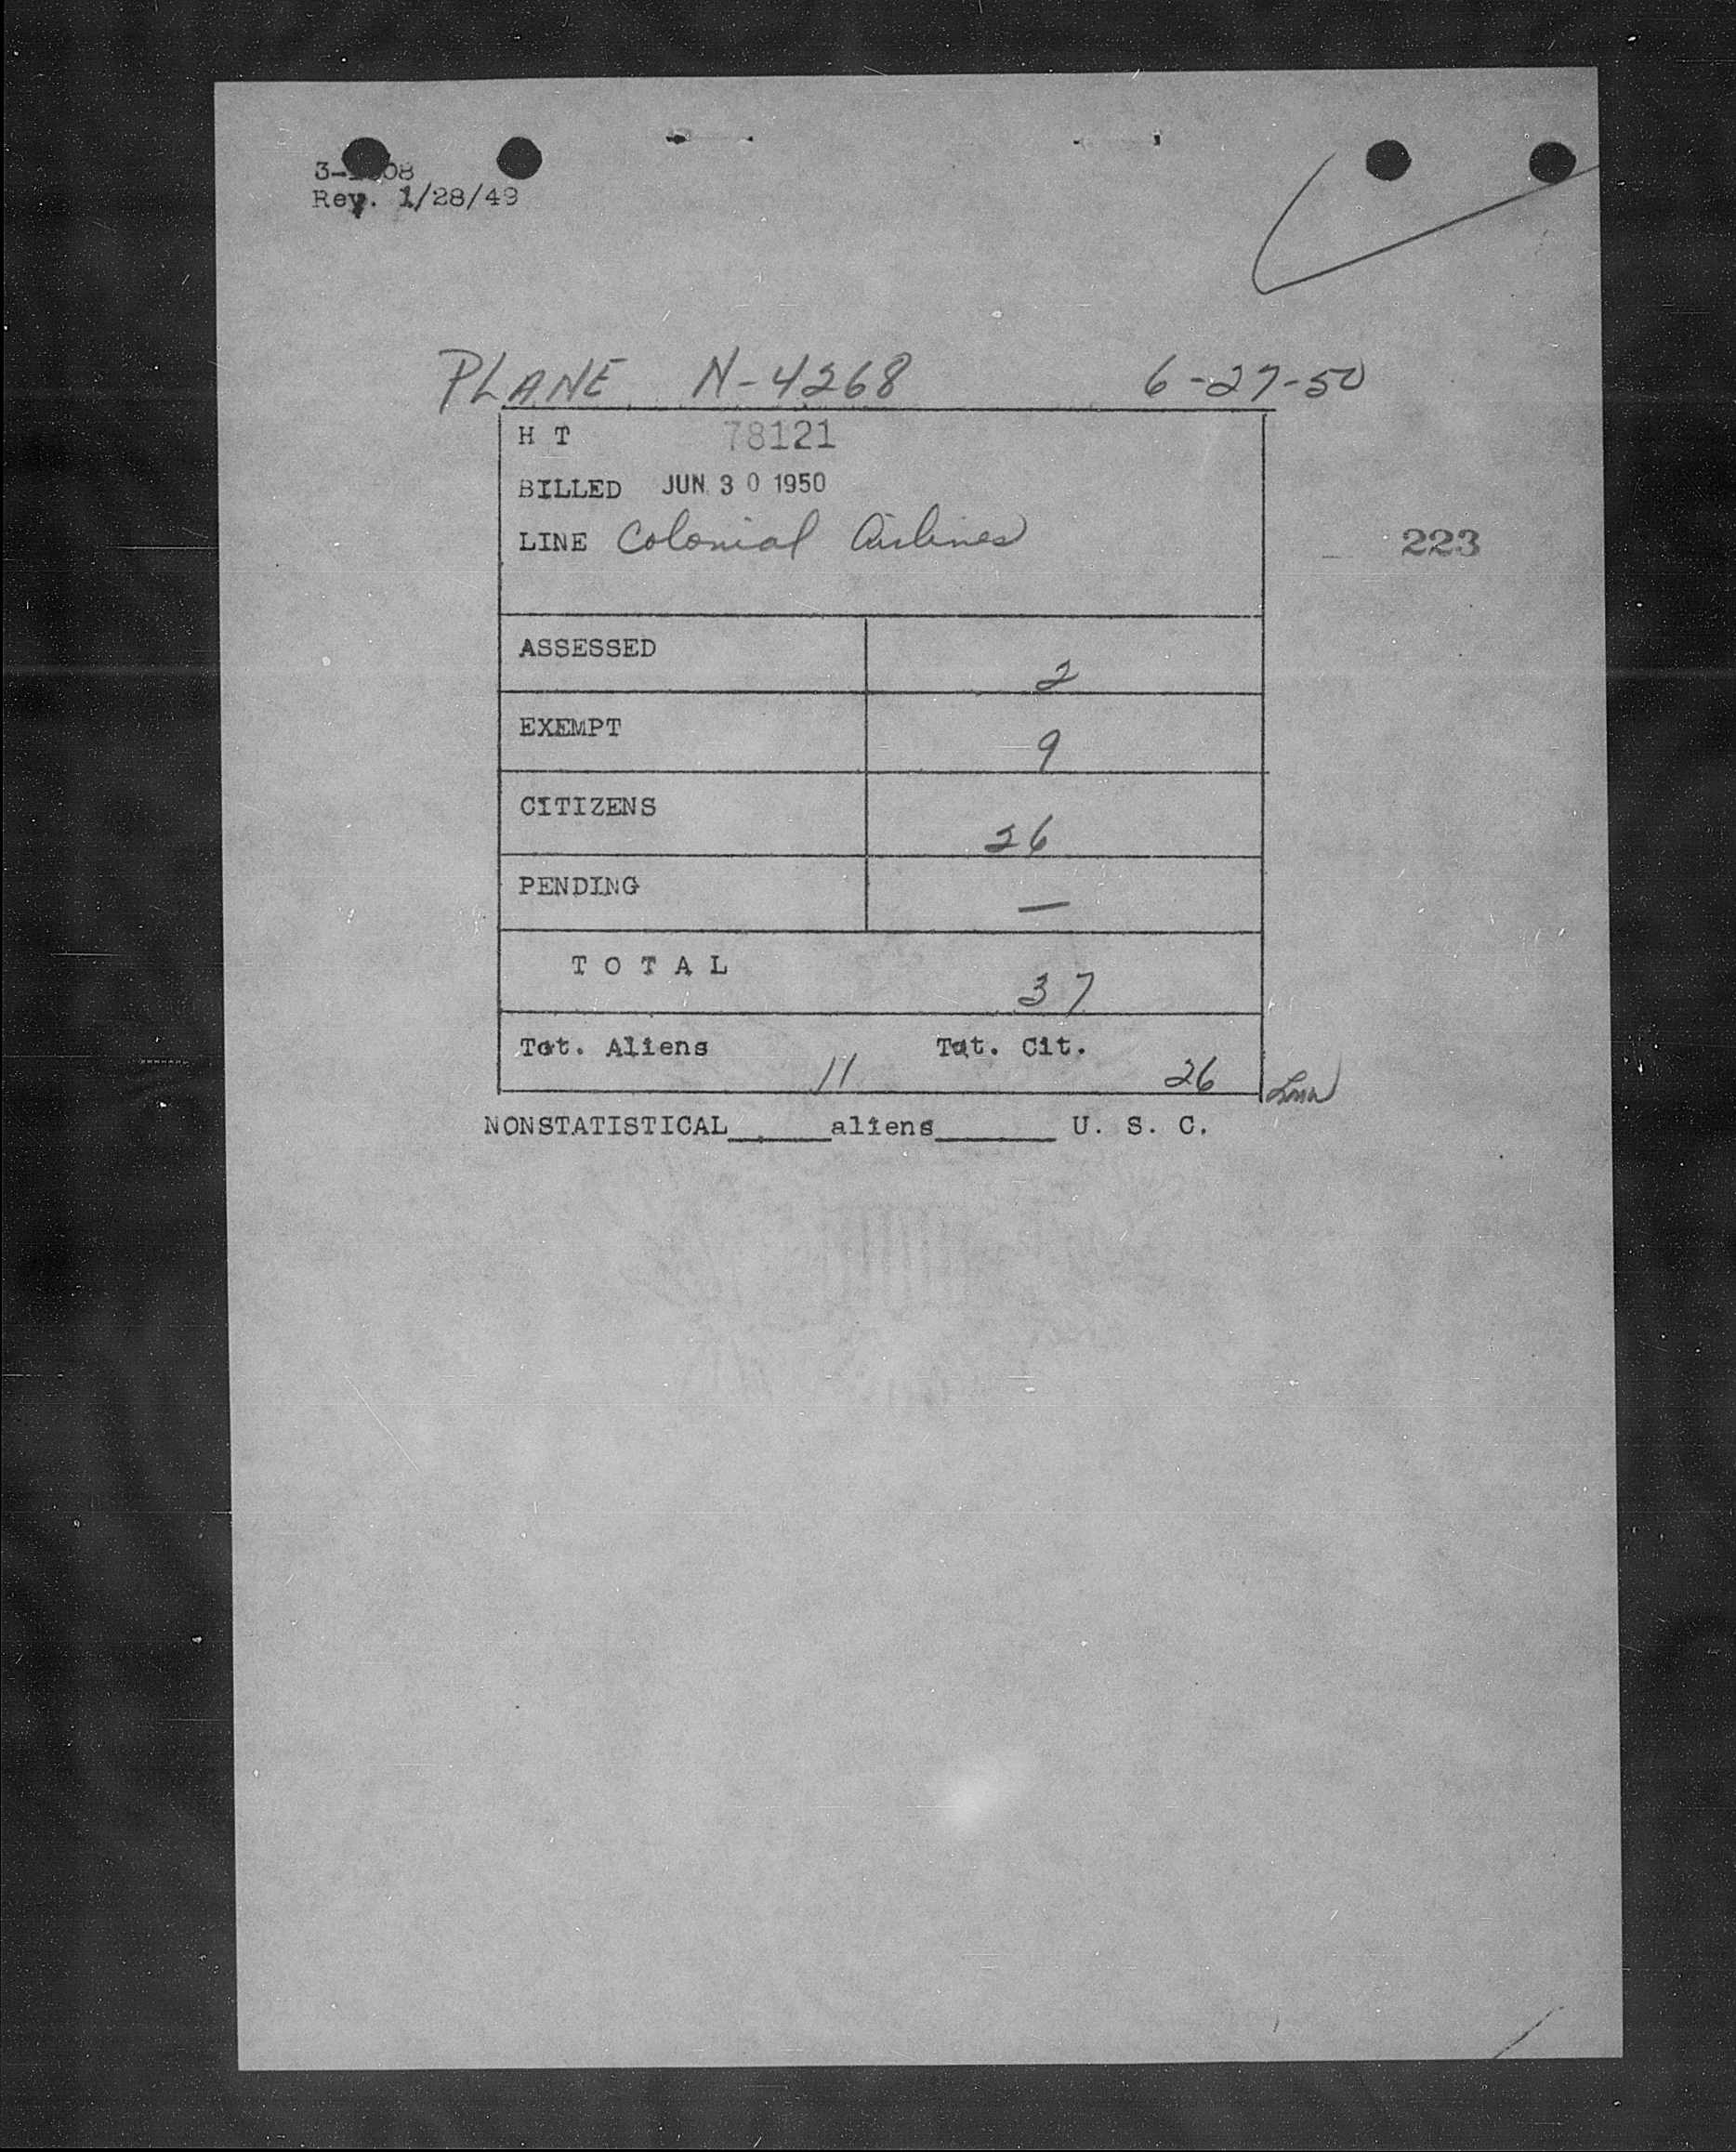 Rev. 1/28/49
PLANE N-4268 6-27-50
H T 78121
BILLED JUN 30 1950
LINE Colonial Airlines
223
ASSESSED 2
EXEMPT 9
CITIZENS 26
PENDING —
T O T A L 37
Tot. Aliens 11 Tot. Cit. 26
NONSTATISTICAL______aliens_______ U. S. C.